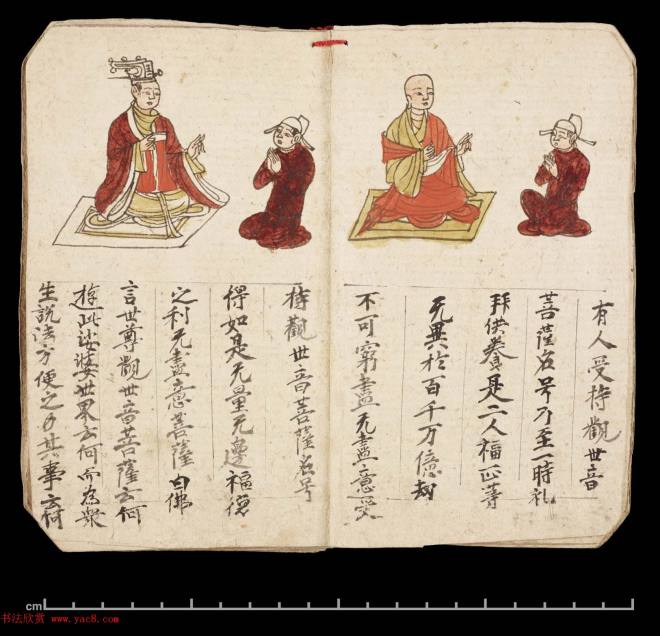 有人受持觀世音
菩薩名号乃至一時礼
拜供養是二人福正等
无異於百千万億劫
不可窮盡无盡意受
持觀世音菩薩名号
得如是无量无邊福德
之利无盡意菩薩白佛
言世尊觀世音菩薩云何
遊此娑婆世界云何而為衆
生說法方便之力其事云何
cm
书法欣赏 www.yac8.com